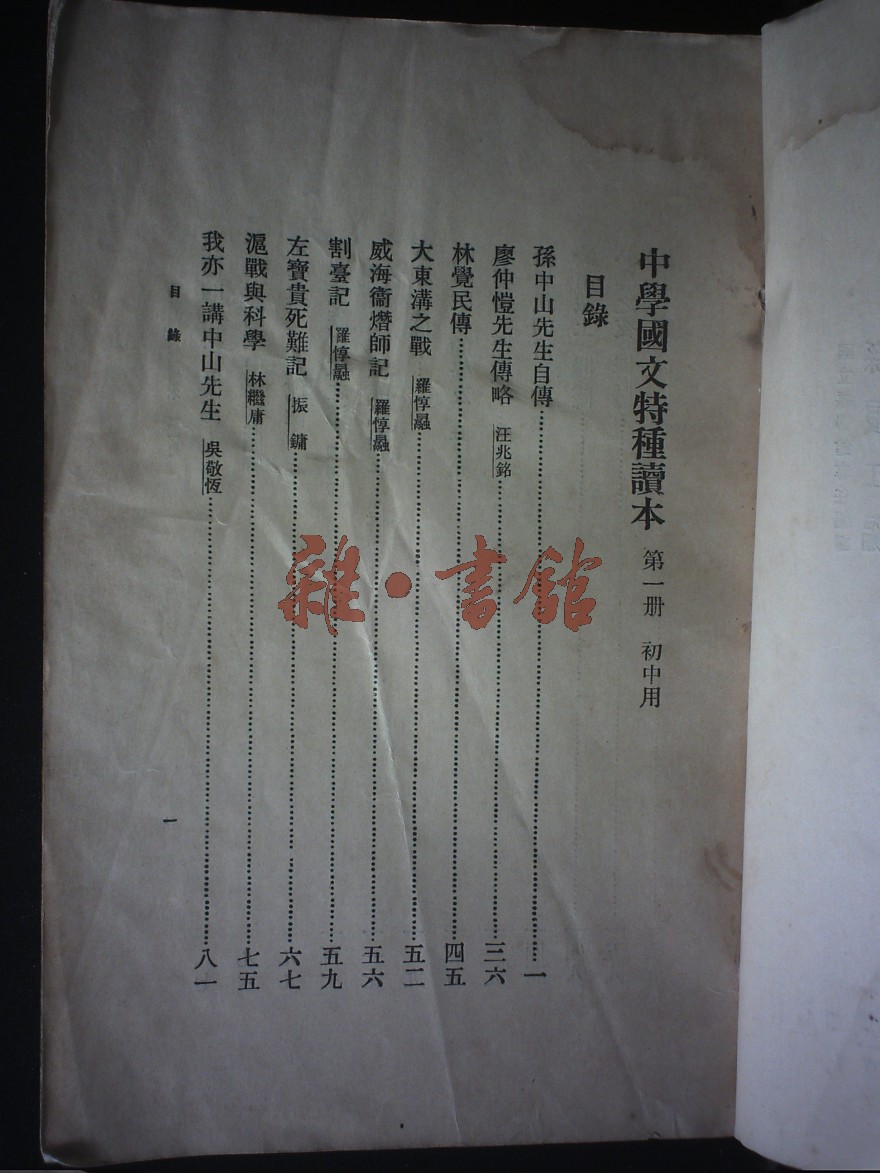 中學國文特種讀本 第一册 初中用
目錄
孫中山先生自傳……一
廖仲愷先生傳略 汪兆銘……三六
林覺民傳……四五
大東溝之戰 羅惇曧……五二
威海衞熸師記 羅惇曧……五六
割臺記 羅惇曧……五九
左寶貴死難記 振鏞……六七
滬戰與科學 林繼庸……七五
我亦一講中山先生 吳敬恆……八一
目錄 一
雜·書館